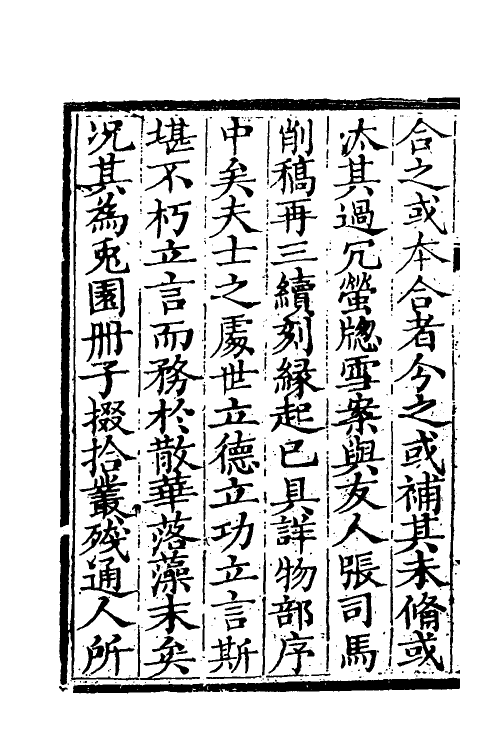 合之或本合者今之或補其未脩或
汰其過冗螢牎雪案與友人張司馬
削稿再三續刻緣起已具詳物部序
中矣夫士之處世立德立功立言斯
堪不朽立言而務於散華落藻末矣
况其為兎園冊子掇拾叢殘通人所